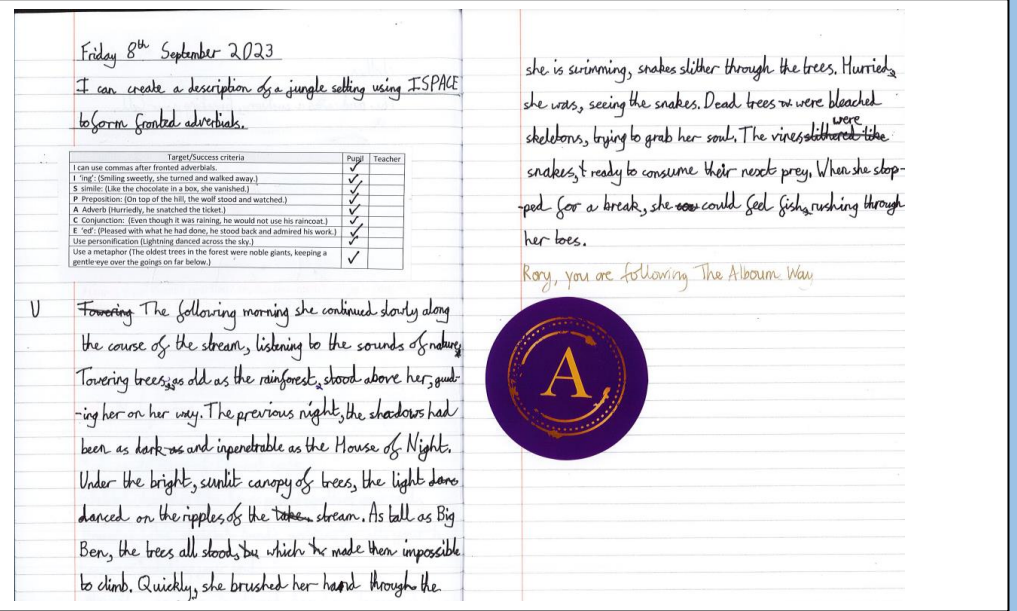 Friday 8th September 2023
I can create a description of a jungle setting using ISPACE
to form fronted adverbials.
Target/Success criteria Pupil Teacher
I can use commas after fronted adverbials. ✓
I 'ing': (Smiling sweetly, she turned and walked away.) ✓
S simile: (Like the chocolate in a box, she vanished.) ✓
P Preposition: (On top of the hill, the wolf stood and watched.) ✓
A Adverb (Hurriedly, he snatched the ticket.) ✓
C Conjunction: (Even though it was raining, he would not use his raincoat.) ✓
E 'ed': (Pleased with what he had done, he stood back and admired his work.) ✓
Use personification (Lightning danced across the sky.) ✓
Use a metaphor (The oldest trees in the forest were noble giants, keeping a
gentle eye over the goings on far below.) ✓
U
Towering The following morning she continued slowly along
the course of the stream, listening to the sounds of nature.
Towering trees, as old as the rainforest, stood above her, guid-
-ing her on her way. The previous night, the shadows had
been as dark as and inpenetrable as the House of Night.
Under the bright, sunlit canopy of trees, the light danc
danced on the ripples of the stream. As tall as Big
Ben, the trees all stood, which made them impossible
to climb. Quickly, she brushed her hand through the
she is swimming, snakes slither through the trees. Hurried,
she was, seeing the snakes. Dead trees were bleached
skeletons, trying to grab her soul. The vines slithered like were
snakes, ready to consume their next prey. When she stop-
-ped for a break, she could feel fish, rushing through
her toes.
Rory, you are following The Alboum Way
A